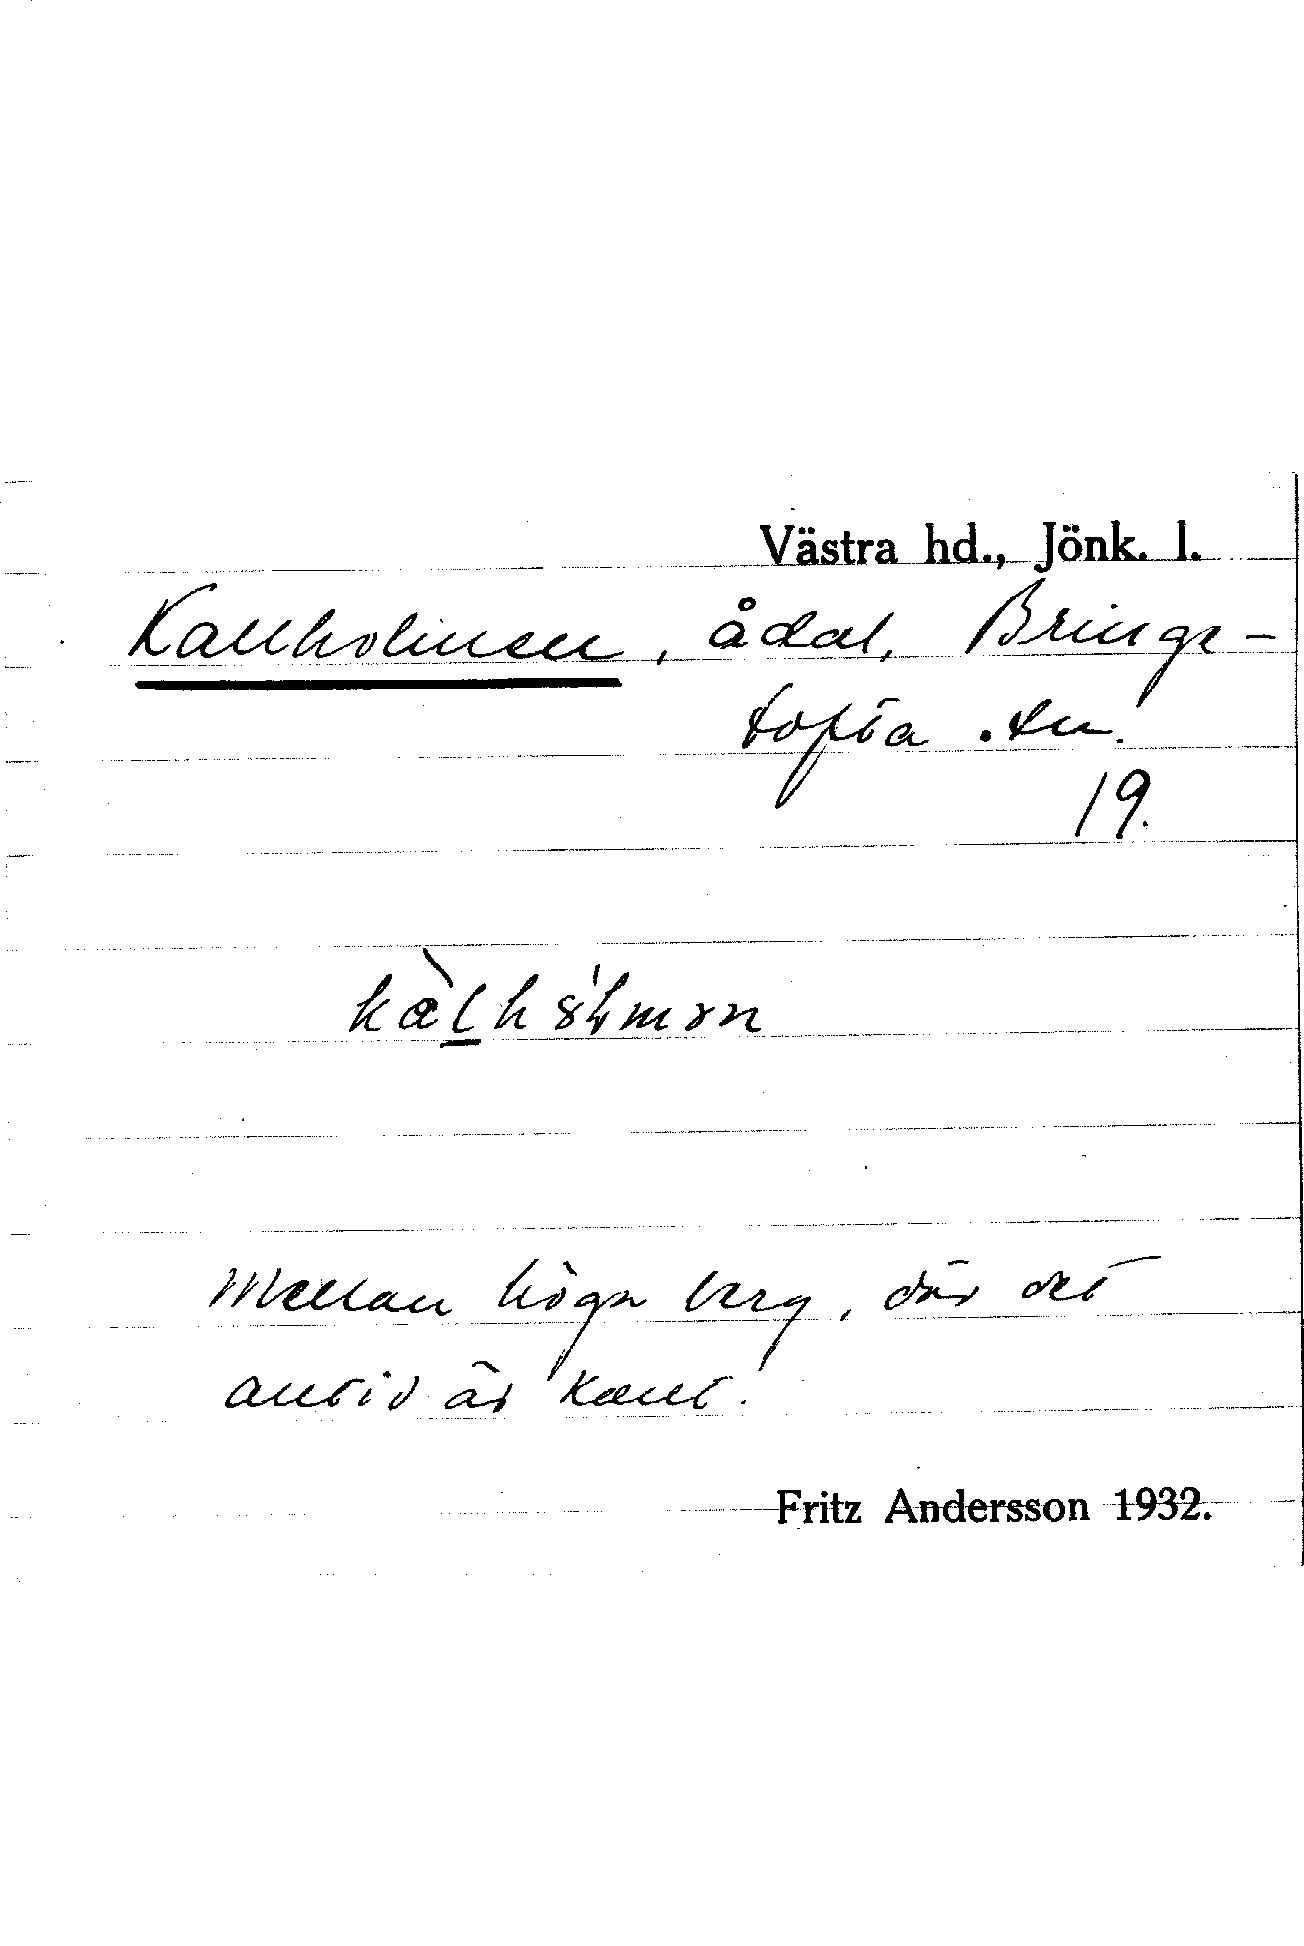 Västra hd., Jönk. l.
Kallholmen, ådal, Bringe-
tofta sn.
19.
Mellan höga berg, där det
alltid är kallt.
Fritz Andersson 1932.